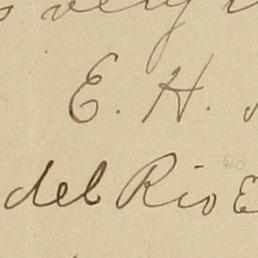 very
E. H.
del Rio E